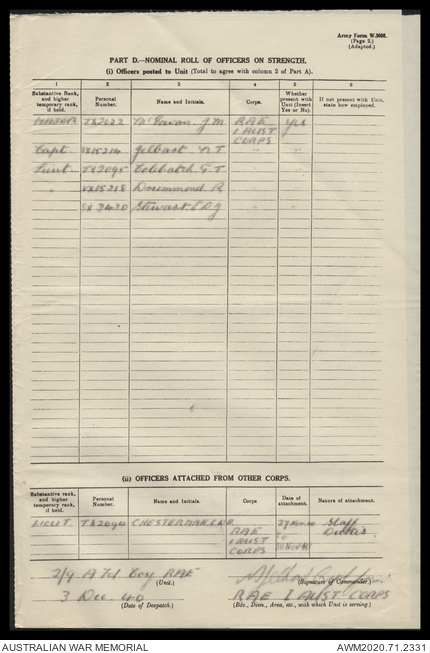 Army Form W.3008.
(Page 2.)
(Adapted.)
PART D.—NOMINAL ROLL OF OFFICERS ON STRENGTH.
(i) Officers posted to Unit (Total to agree with column 2 of Part A).
1 2 3 4 5 6
Substantive Rank, and higher temporary rank, if held. Personal Number. Name and Initials. Corps. Whether present with Unit (Insert Yes or No). If not present with Unit, state how employed.
MAJOR TX2022 McGowan J M RAE Yes
1 AUST
CORPS
Capt. VX15214 Gelbart N T " "
Lieut. TX2095 Colebatch G. T. " "
" VX15218 Drummond R " "
SX3430 Stewart E D G " "
(ii) OFFICERS ATTACHED FROM OTHER CORPS.
Substantive rank, and higher temporary rank, if held. Personal Number. Name and Initials. Corps Date of attachment. Nature of attachment.
LIEUT TX2094 CHESTERMAN 27 Nov 40 Staff
RAE to Duties
1 AUST 30 Nov 40
CORPS
2/9 A Fd Coy RAE
(Unit.) (Signature of Commander)
3 Dec 40 RAE 1 AUST CORPS
(Date of Despatch.) (Bde., Divn., Area, etc., with which Unit is serving.)
AUSTRALIAN WAR MEMORIAL AWM2020.71.2331